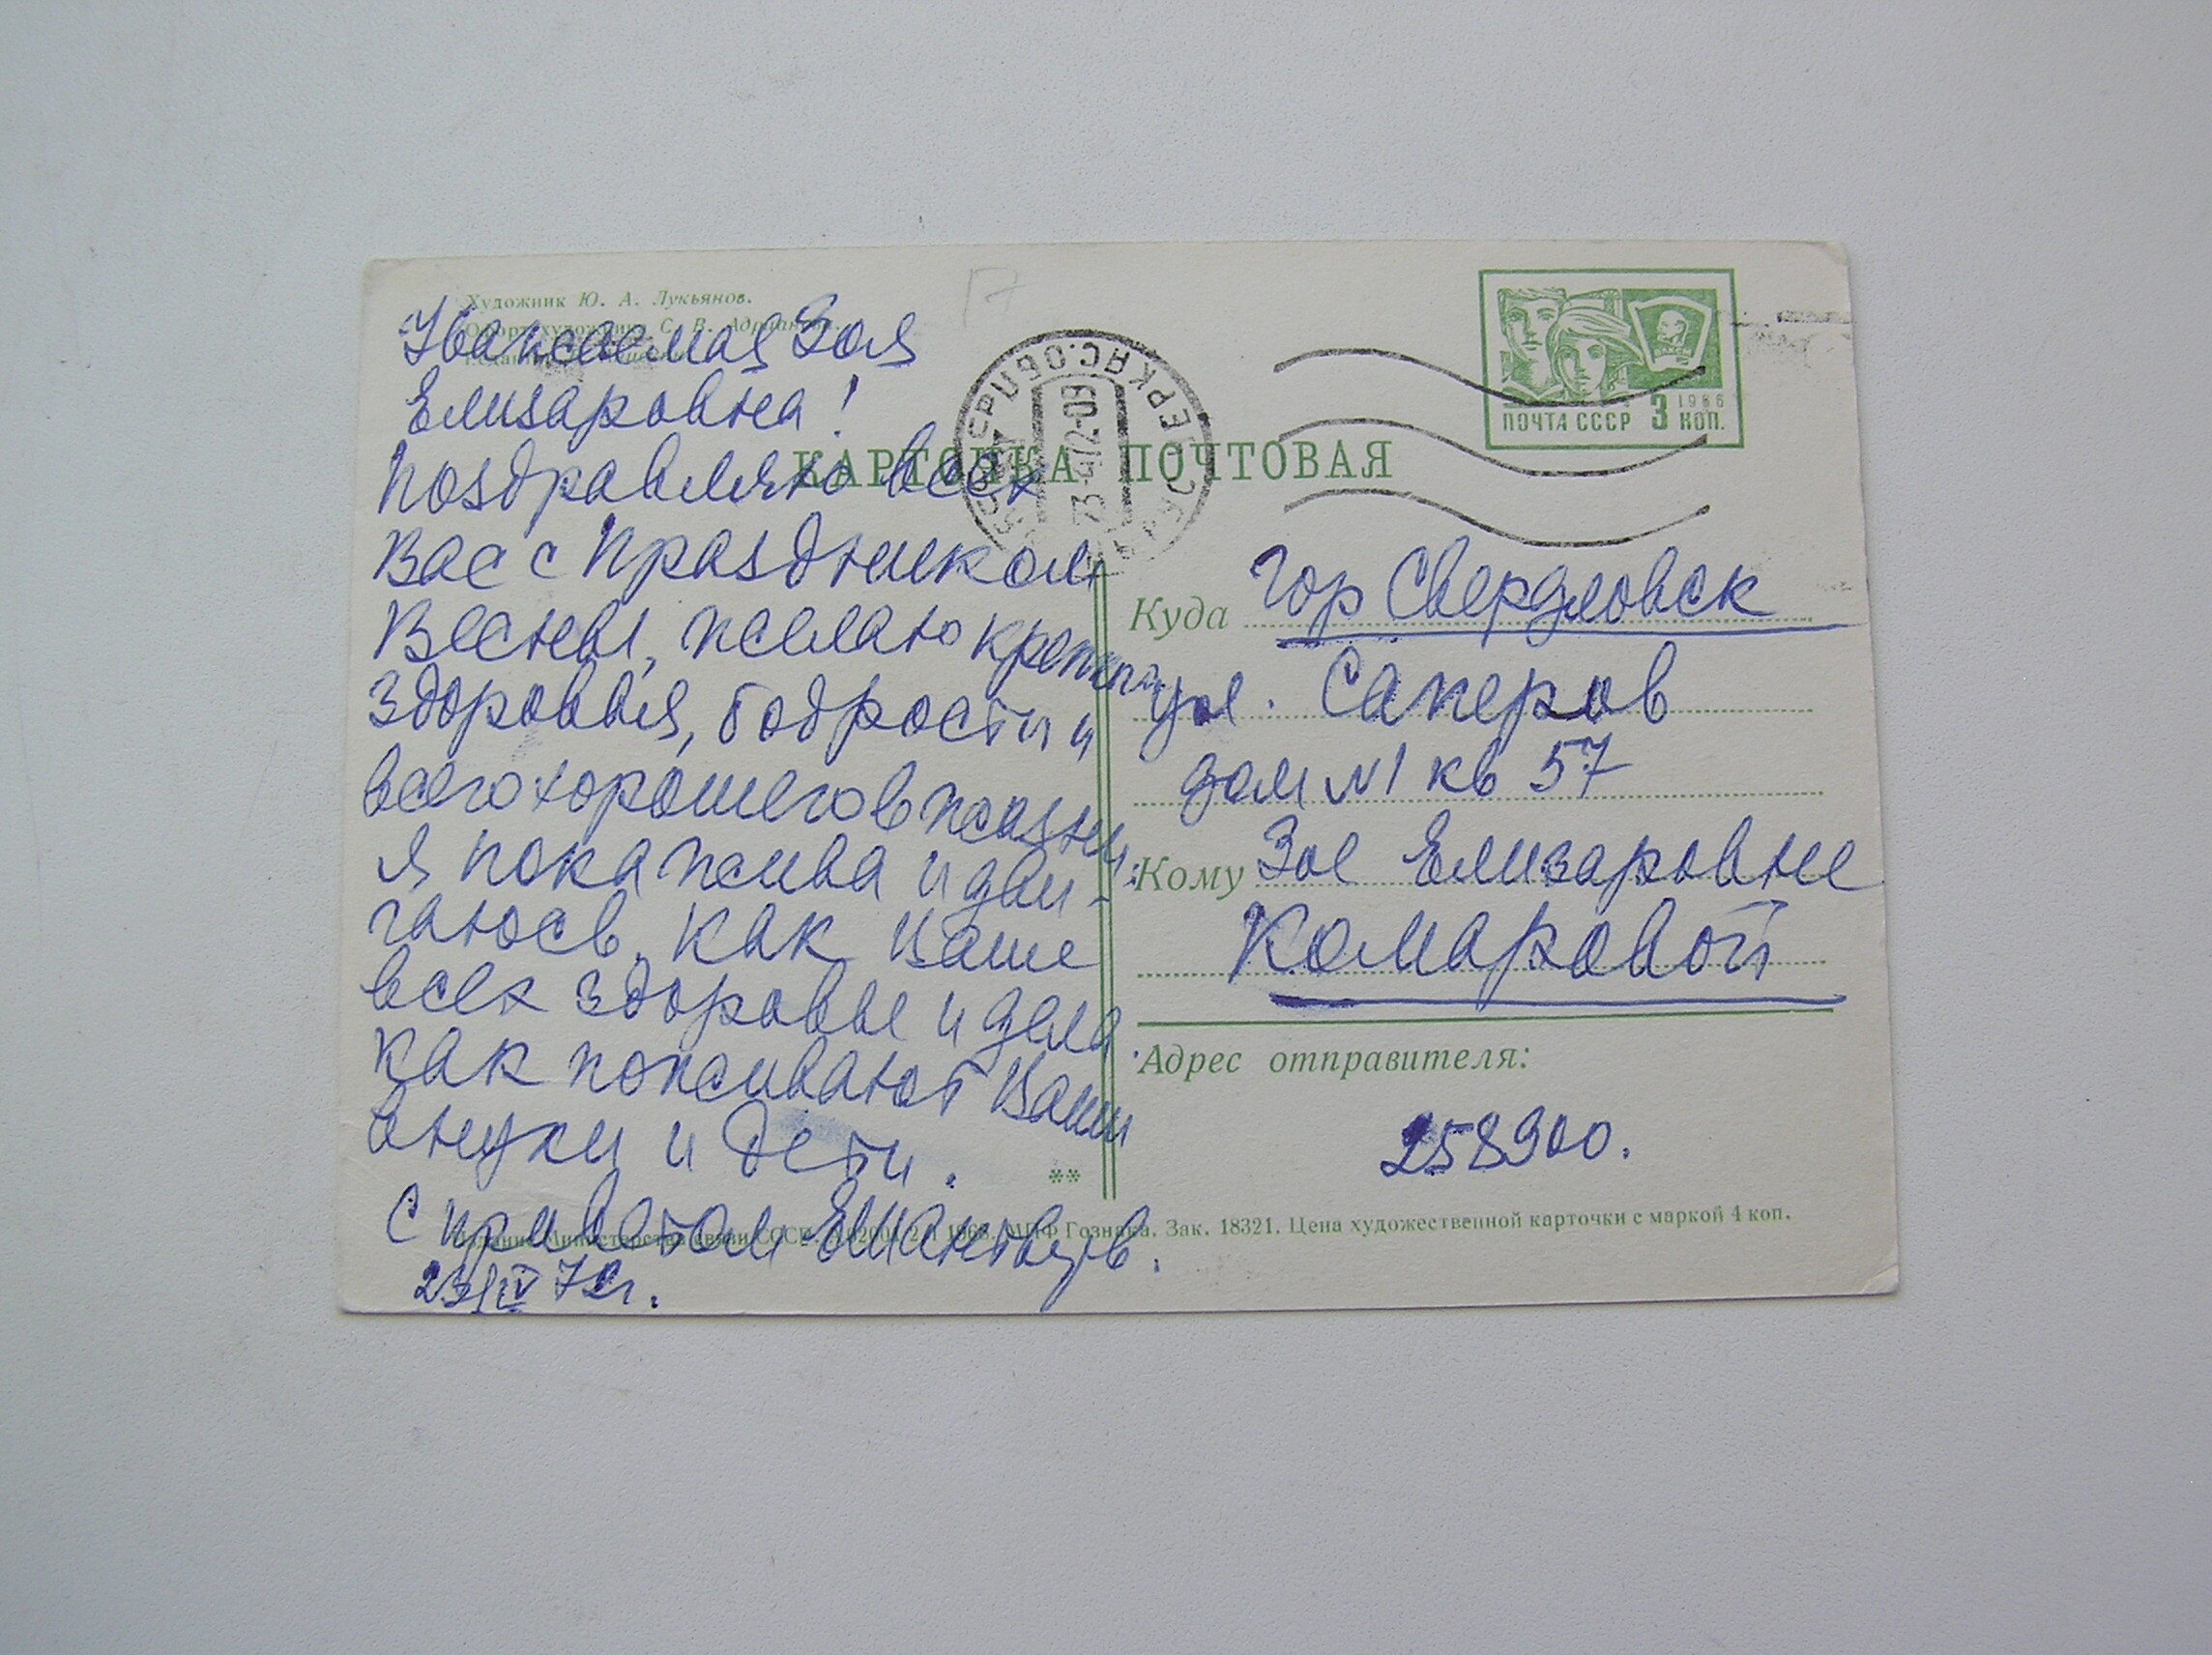 Художник Ю. А. Лукьянов.
Уважаемая Зоя
Елизаровна!
Поздравляю всех
Вас с Праздником
Весны, желаю крепкого
здоровья, бодрости и
всего хорошего в жизни.
Я пока жива и дви-
гаюсь. Как Ваше
всех здоровье и дела.
Как поживают Ваши
внуки и дети.
С приветом
23/IV 72 г.
КАРТОЧКА ПОЧТОВАЯ
ЧЕРКАС. ОБЛ.
ПОЧТА СССР 3 КОП.
1966
Куда Гор Свердловск
ул. Саперов
дом N1 кв 57
Кому Зое Елизаровне
Комаровой
Адрес отправителя:
258900.
**
Издание Министерства связи СССР. МПФ Гознака. Зак. 18321. Цена художественной карточки с маркой 4 коп.